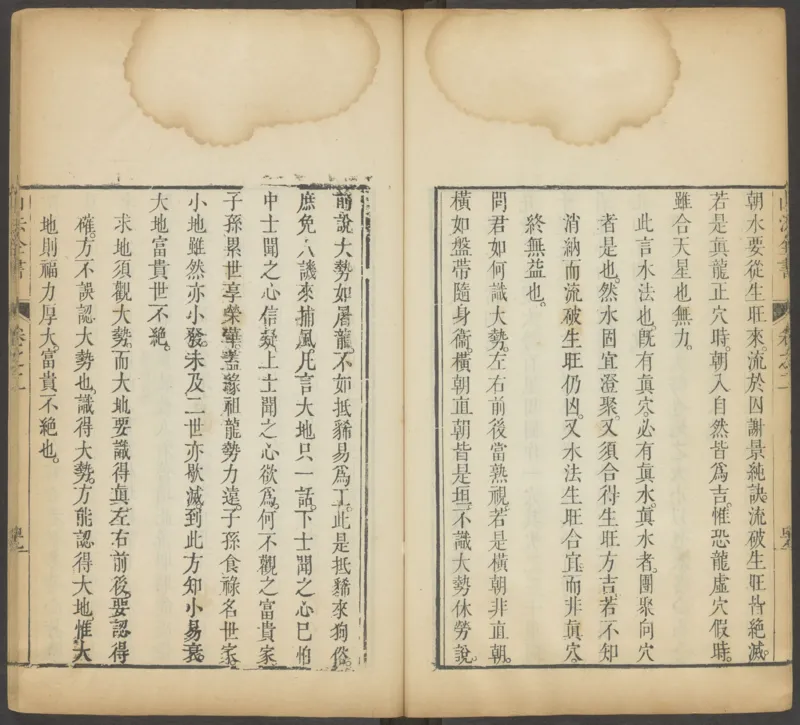 朝水要從生旺來。流於囚謝景純訣。流破生旺皆絕滅。
若是真龍正穴時。朝入自然皆爲吉。惟恐龍虛穴假時。
雖合天星也無力。
此言水法也。既有真穴。必有真水。真水者。團聚向穴
者是也。然水固宜澄聚。又須合得生旺方吉。若不知
消納而流破生旺仍凶。又水法生旺合宜。而非真穴。
終無益也。
問君如何識大勢。左右前後當熟視。若是橫朝非直朝。
橫如盤帶隨身衛。橫朝直朝皆是垣。不識大勢休勞說。
前說大勢如屠龍。不如抵豨易爲工。此是抵豨來狗俗。
庶免人譏來捕風。凡言大地只一話。下士聞之心已怕
中士聞之心信疑。上士聞之心欲爲。何不觀之富貴家
子孫累世享榮華。蓋緣祖龍勢力遠。子孫食祿名世家
小地雖然亦小發。未及二世亦歇滅。到此方知小易衰。
大地富貴世不絕。
求地須觀大勢。而大地要識得真。左右前後。要認得
確。方不誤認大勢也。識得大勢。方能認得大地。惟大
地則福力厚大。富貴不絕也。
山法全書
卷之二